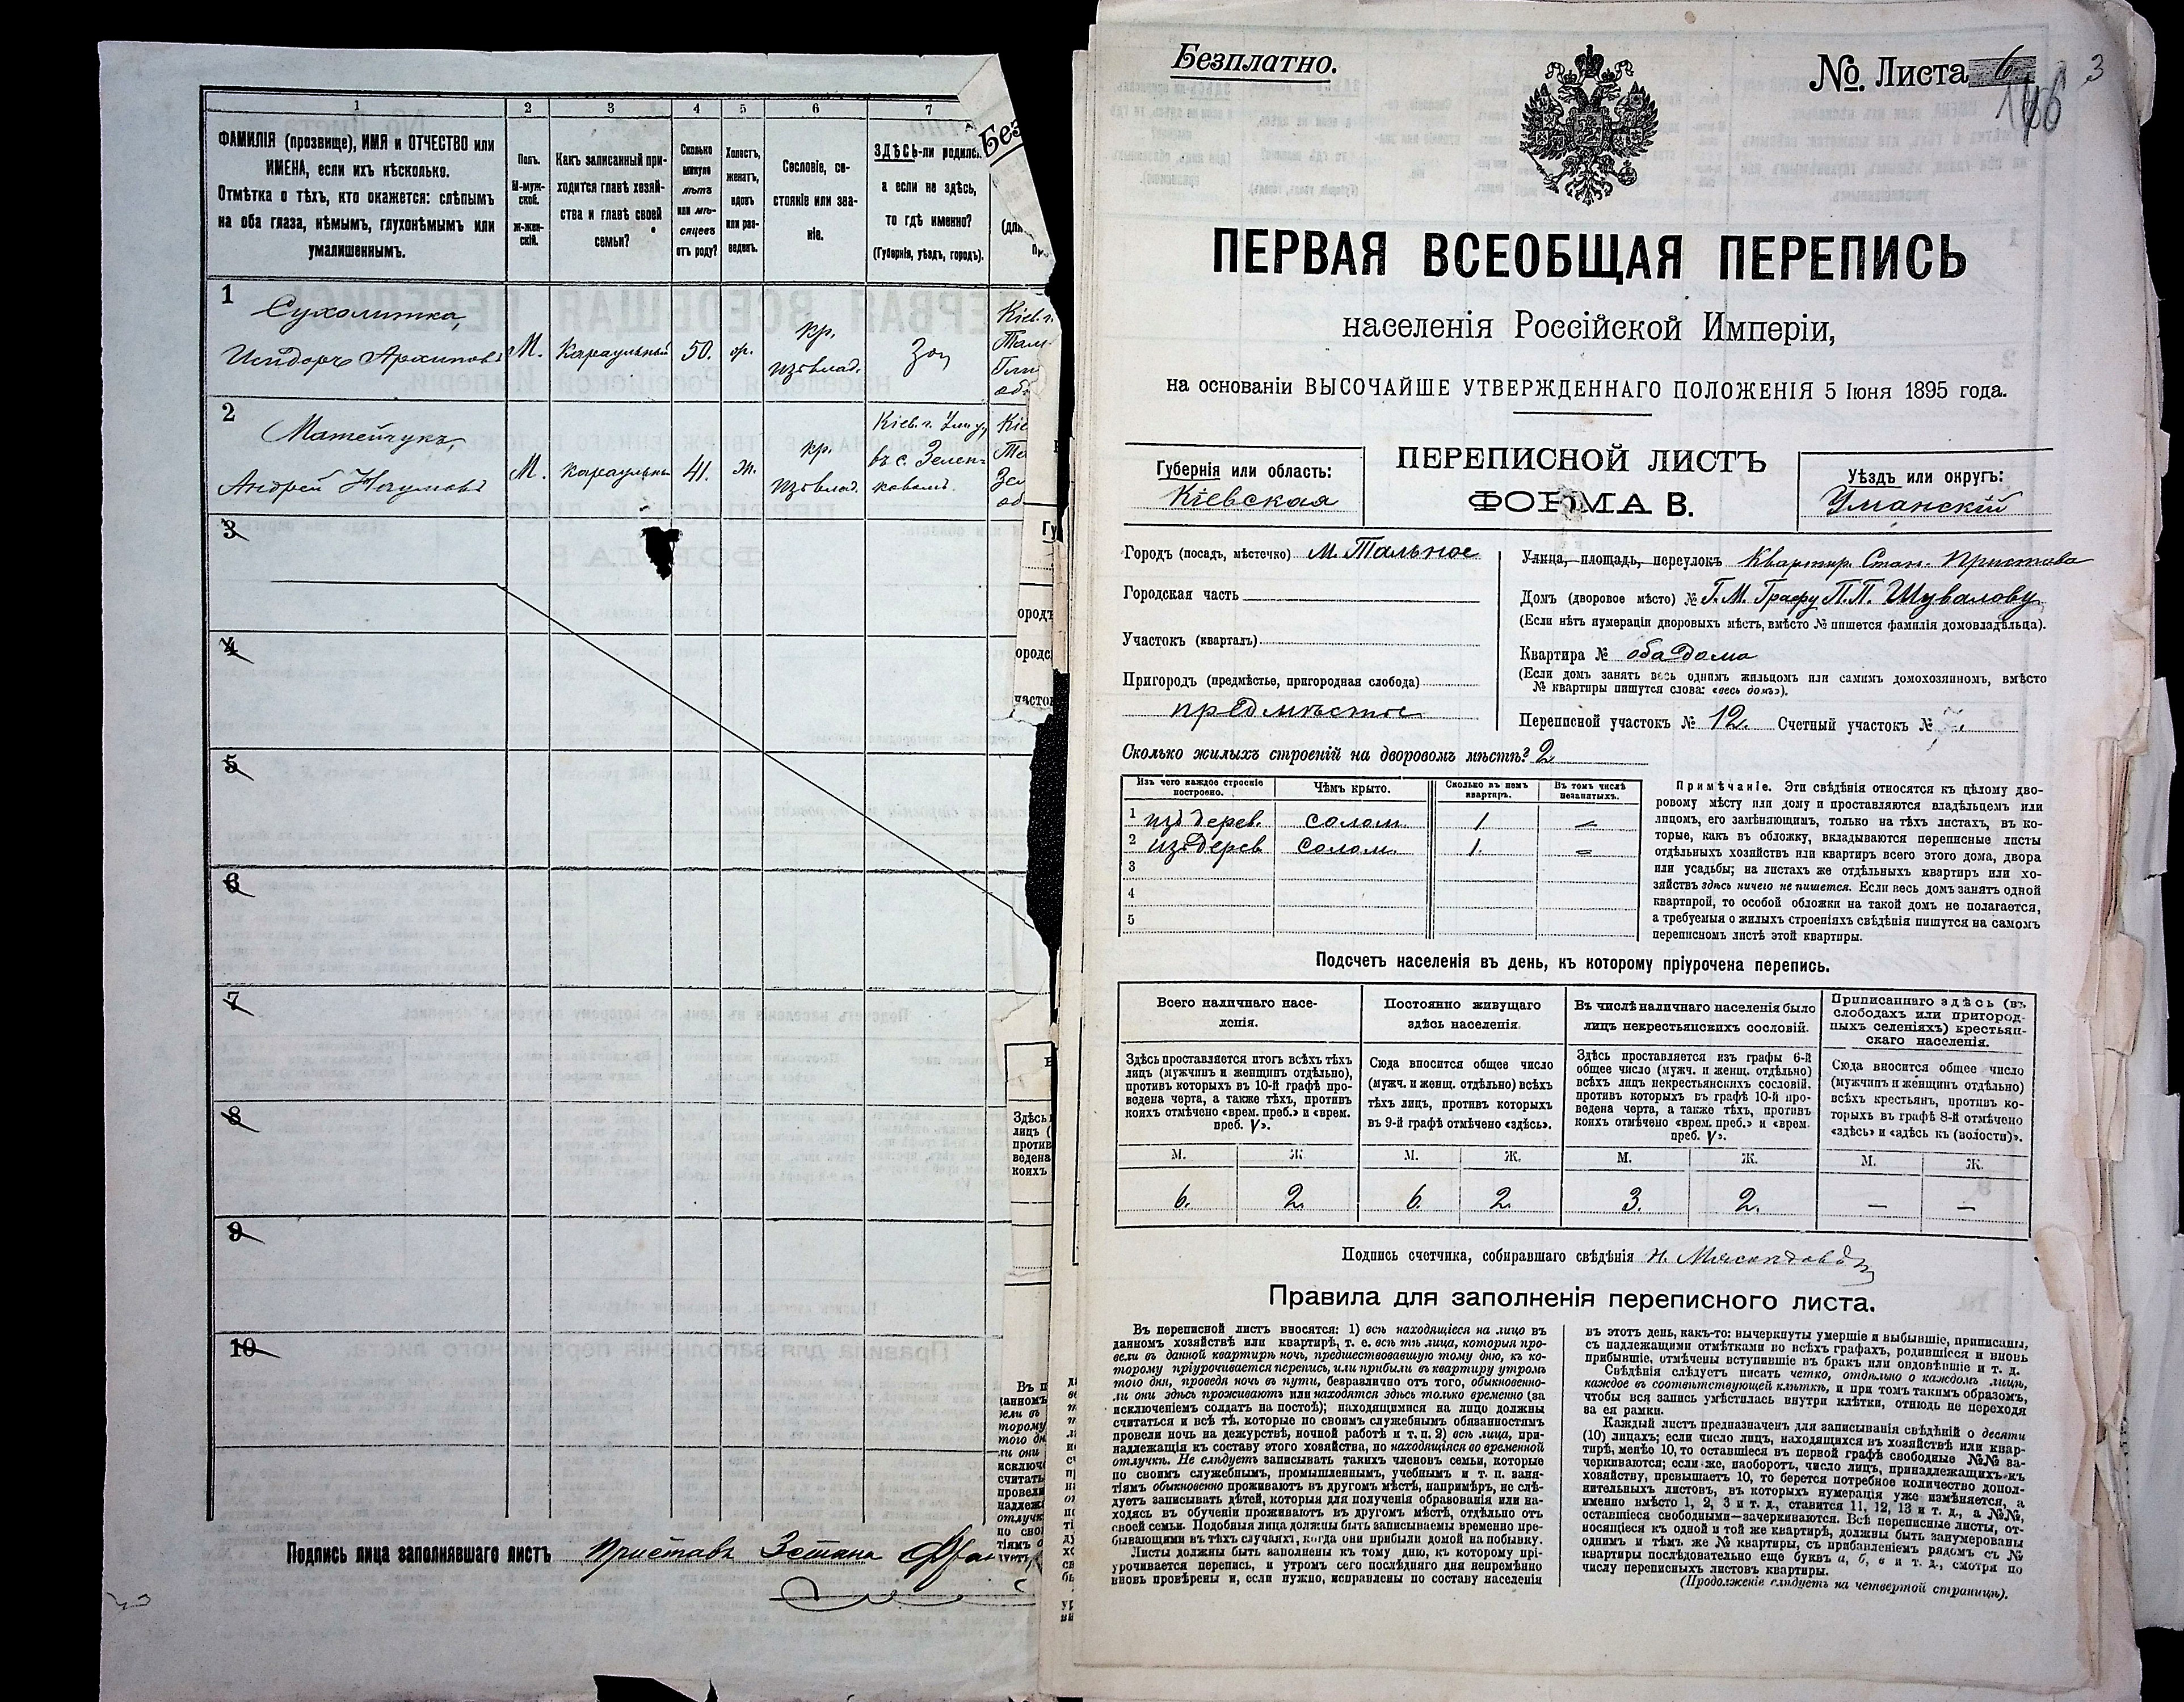 1
2
3
4
5
6
7
ФАМИЛІЯ (прозвище), ИМЯ и ОТЧЕСТВО или
ИМЕНА, если ихъ нѣсколько.
Отмѣтка о тѣхъ, кто окажется: слѣпымъ
на оба глаза, нѣмымъ, глухонѣмымъ или
умалишеннымъ.
Полъ.
М-муж-
ской.
Ж-жен-
скій.
Какъ записанный при-
ходится главѣ хозяй-
ства и главѣ своей
семьи?
Сколько
минуло
лѣтъ
или мѣ-
сяцевъ
отъ роду?
Холостъ,
женатъ,
вдовъ
или раз-
веденъ.
Сословіе, со-
стояніе или зва-
ніе.
ЗДѢСЬ-ли родился
а если не здѣсь,
то гдѣ именно?
(Губернія, уѣздъ, городъ).
1
Сухолитка,
Исидоръ Архиповъ
М.
Караульный
50.
кр.
изъ влад.
Кіев. г.
Таль
2
Матейчукъ,
Андрей Наумовъ
М.
караульны
41.
кр.
изъ влад.
Кіев. г. Уман. у.
въ с. Зелень-
ковомъ.
3
4
5
6
7
8
9
10
Подпись лица заполнявшаго листъ Приставъ 3 стана
Безплатно.
№ Листа 6
3
ПЕРВАЯ ВСЕОБЩАЯ ПЕРЕПИСЬ
населенія Россійской Имперіи,
на основаніи ВЫСОЧАЙШЕ УТВЕРЖДЕННАГО ПОЛОЖЕНІЯ 5 Іюня 1895 года.
Губернія или область:
Кіевская
ПЕРЕПИСНОЙ ЛИСТЪ
ФОРМА В.
Уѣздъ или округъ:
Уманскій
Городъ (посадъ, мѣстечко) м. Тальное
Городская часть
Участокъ (кварталъ)
Пригородъ (предмѣстье, пригородная слобода)
предмѣстье
Улица, площадь, переулокъ Квартир. Стан. Пристава
Домъ (дворовое мѣсто) № Г. М. Графу П. П. Шувалову
(Если нѣтъ нумераціи дворовыхъ мѣстъ, вмѣсто № пишется фамилія домовладѣльца).
Квартира № оба дома
(Если домъ занятъ весь однимъ жильцомъ или самимъ домохозяиномъ, вмѣсто
№ квартиры пишутся слова: «весь домъ»).
Переписной участокъ № 12. Счетный участокъ №
Сколько жилыхъ строеній на дворовомъ мѣстѣ? 2
Изъ чего каждое строеніе
построено.
Чѣмъ крыто.
Сколько въ немъ
квартиръ.
Въ томъ числѣ
незанятыхъ.
1 изъ дерев. солом. 1 –
2 изъ дерев солом. 1. –
3
4
5
Примѣчаніе. Эти свѣдѣнія относятся къ цѣлому дво-
ровому мѣсту или дому и проставляются владѣльцемъ или
лицомъ, его замѣняющимъ, только на тѣхъ листахъ, въ ко-
торые, какъ въ обложку, вкладываются переписные листы
отдѣльныхъ хозяйствъ или квартиръ всего этого дома, двора
или усадьбы; на листахъ же отдѣльныхъ квартиръ или хо-
зяйствъ здѣсь ничего не пишется. Если весь домъ занятъ одной
квартирой, то особой обложки на такой домъ не полагается,
а требуемыя о жилыхъ строеніяхъ свѣдѣнія пишутся на самомъ
переписномъ листѣ этой квартиры.
Подсчетъ населенія въ день, къ которому пріурочена перепись.
Всего наличнаго насе-
ленія.
Постоянно живущаго
здѣсь населенія.
Въ числѣ наличнаго населенія было
лицъ некрестьянскихъ сословій.
Приписаннаго здѣсь (въ
слободахъ или пригород-
ныхъ селеніяхъ) крестьян-
скаго населенія.
Здѣсь проставляется итогъ всѣхъ тѣхъ
лицъ (мужчинъ и женщинъ отдѣльно),
противъ которыхъ въ 10-й графѣ про-
ведена черта, а также тѣхъ, противъ
коихъ отмѣчено «врем. преб.» и «врем.
преб. V».
Сюда вносится общее число
(мужч. и женщ. отдѣльно) всѣхъ
тѣхъ лицъ, противъ которыхъ
въ 9-й графѣ отмѣчено «здѣсь».
Здѣсь проставляется изъ графы 6-й
общее число (мужч. и женщ. отдѣльно)
всѣхъ лицъ некрестьянскихъ сословій,
противъ которыхъ въ графѣ 10-й про-
ведена черта, а также тѣхъ, противъ
коихъ отмѣчено «врем. преб.» и «врем.
преб. V».
Сюда вносится общее число
(мужчинъ и женщинъ отдѣльно)
всѣхъ крестьянъ, противъ ко-
торыхъ въ графѣ 8-й отмѣчено
«здѣсь» и «здѣсь къ (волости)».
М. Ж. М. Ж. М. Ж. М. Ж.
6. 2. 6. 2. 3. 2. — —
Подпись счетчика, собиравшаго свѣдѣнія Н. Мясоѣдовъ
Правила для заполненія переписного листа.
Въ переписной листъ вносятся: 1) всѣ находящіеся на лицо въ
данномъ хозяйствѣ или квартирѣ, т. е. всѣ тѣ лица, которыя про-
вели въ данной квартирѣ ночь, предшествовавшую тому дню, къ ко-
торому пріурочивается перепись, или прибыли въ квартиру утромъ
того дня, проведя ночь въ пути, безразлично отъ того, обыкновенно-
ли они здѣсь проживаютъ или находятся здѣсь только временно (за
исключеніемъ солдатъ на постоѣ); находящимися на лицо должны
считаться и всѣ тѣ, которые по своимъ служебнымъ обязанностямъ
провели ночь на дежурствѣ, ночной работѣ и т. п. 2) всѣ лица, при-
надлежащія къ составу этого хозяйства, но находящіяся во временной
отлучкѣ. Не слѣдуетъ записывать такихъ членовъ семьи, которые
по своимъ служебнымъ, промышленнымъ, учебнымъ и т. п. заня-
тіямъ обыкновенно проживаютъ въ другомъ мѣстѣ, напримѣръ, не слѣ-
дуетъ записывать дѣтей, которыя для полученія образованія или на-
ходясь въ обученіи проживаютъ въ другомъ мѣстѣ, отдѣльно отъ
своей семьи. Подобныя лица должны быть записываемы временно пре-
бывающими въ тѣхъ случаяхъ, когда они прибыли домой на побывку.
Листы должны быть заполнены къ тому дню, къ которому прі-
урочивается перепись, и утромъ сего послѣдняго дня непремѣнно
вновь провѣрены и, если нужно, исправлены по составу населенія
въ этотъ день, какъ-то: вычеркнуты умершіе и выбывшіе, приписаны,
съ надлежащими отмѣтками во всѣхъ графахъ, родившіеся и вновь
прибывшіе, отмѣчены вступившіе въ бракъ или овдовѣвшіе и т. д.
Свѣдѣнія слѣдуетъ писать четко, отдѣльно о каждомъ лицѣ,
каждое въ соотвѣтствующей клѣткѣ, и при томъ такимъ образомъ,
чтобы вся запись умѣстилась внутри клѣтки, отнюдь не переходя
за ея рамки.
Каждый листъ предназначенъ для записыванія свѣдѣній о десяти
(10) лицахъ; если число лицъ, находящихся въ хозяйствѣ или квар-
тирѣ, менѣе 10, то оставшіеся въ первой графѣ свободные №№ за-
черкиваются; если же, наоборотъ, число лицъ, принадлежащихъ къ
хозяйству, превышаетъ 10, то берется потребное количество допол-
нительныхъ листовъ, въ которыхъ нумерація уже измѣняется, а
именно вмѣсто 1, 2, 3 и т. д., ставится 11, 12, 13 и т. д., а №№,
оставшіеся свободными—зачеркиваются. Всѣ переписные листы, от-
носящіеся къ одной и той же квартирѣ, должны быть занумерованы
однимъ и тѣмъ же № квартиры, съ прибавленіемъ рядомъ съ №
квартиры послѣдовательно еще буквъ а, б, в и т. д., смотря по
числу переписныхъ листовъ квартиры.
(Продолженіе слѣдуетъ на четвертой страницѣ).